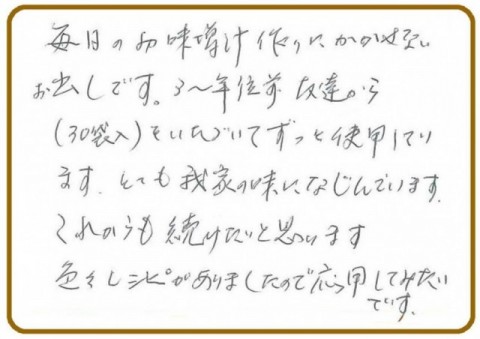 毎日のお味噌汁作りにかかせない
お出しです。3〜年位前 友達から
(30袋入)をいただいてずっと使用してい
ます。とても我家の味になじんでいます。
これからも続けたいと思います
色々レシピがありましたので応用してみたい
です。